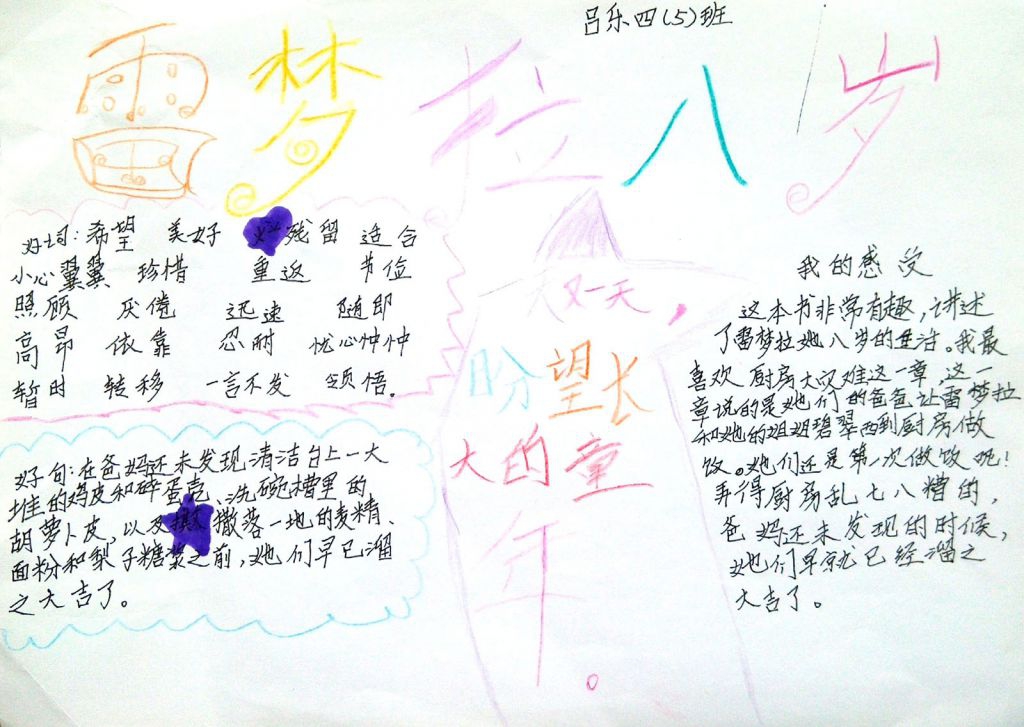 吕乐四(5)班
雷梦拉八岁
好词:希望 美好 残留 适合
小心翼翼 珍惜 重返 节俭
照顾 厌倦 迅速 随即
高昂 依靠 忍耐 忧心忡忡
暂时 转移 一言不发 领悟。
好句:在爸妈还未发现清洁台上一大
堆的鸡皮和碎蛋壳、洗碗槽里的
胡萝卜皮,以及撒落一地的麦精、
面粉和梨子糖浆之前,她们早已溜
之大吉了。
又一天,
盼望长
大的童
年。
我的感受
这本书非常有趣,讲述
了雷梦拉她八岁的生活。我最
喜欢厨房大灾难这一章,这一
章说的是她们的爸爸让雷梦拉
和她的姐姐碧翠西到厨房做
饭。她们还是第一次做饭呢!
弄得厨房乱七八糟的,
爸妈还未发现的时候,
她们早就已经溜之
大吉了。